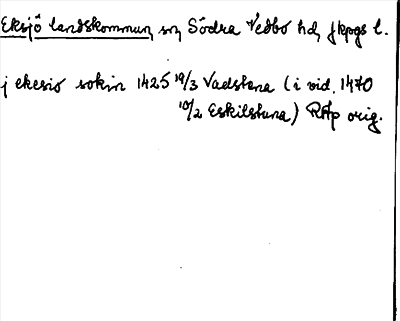 Eksjö landskommun, sn, Södra Vedbo hd, Jkpgs l.
j ekesio sokin 1425 19/3 Vadstena (i vid. 1470
10/2 Eskilstuna) RAp orig.